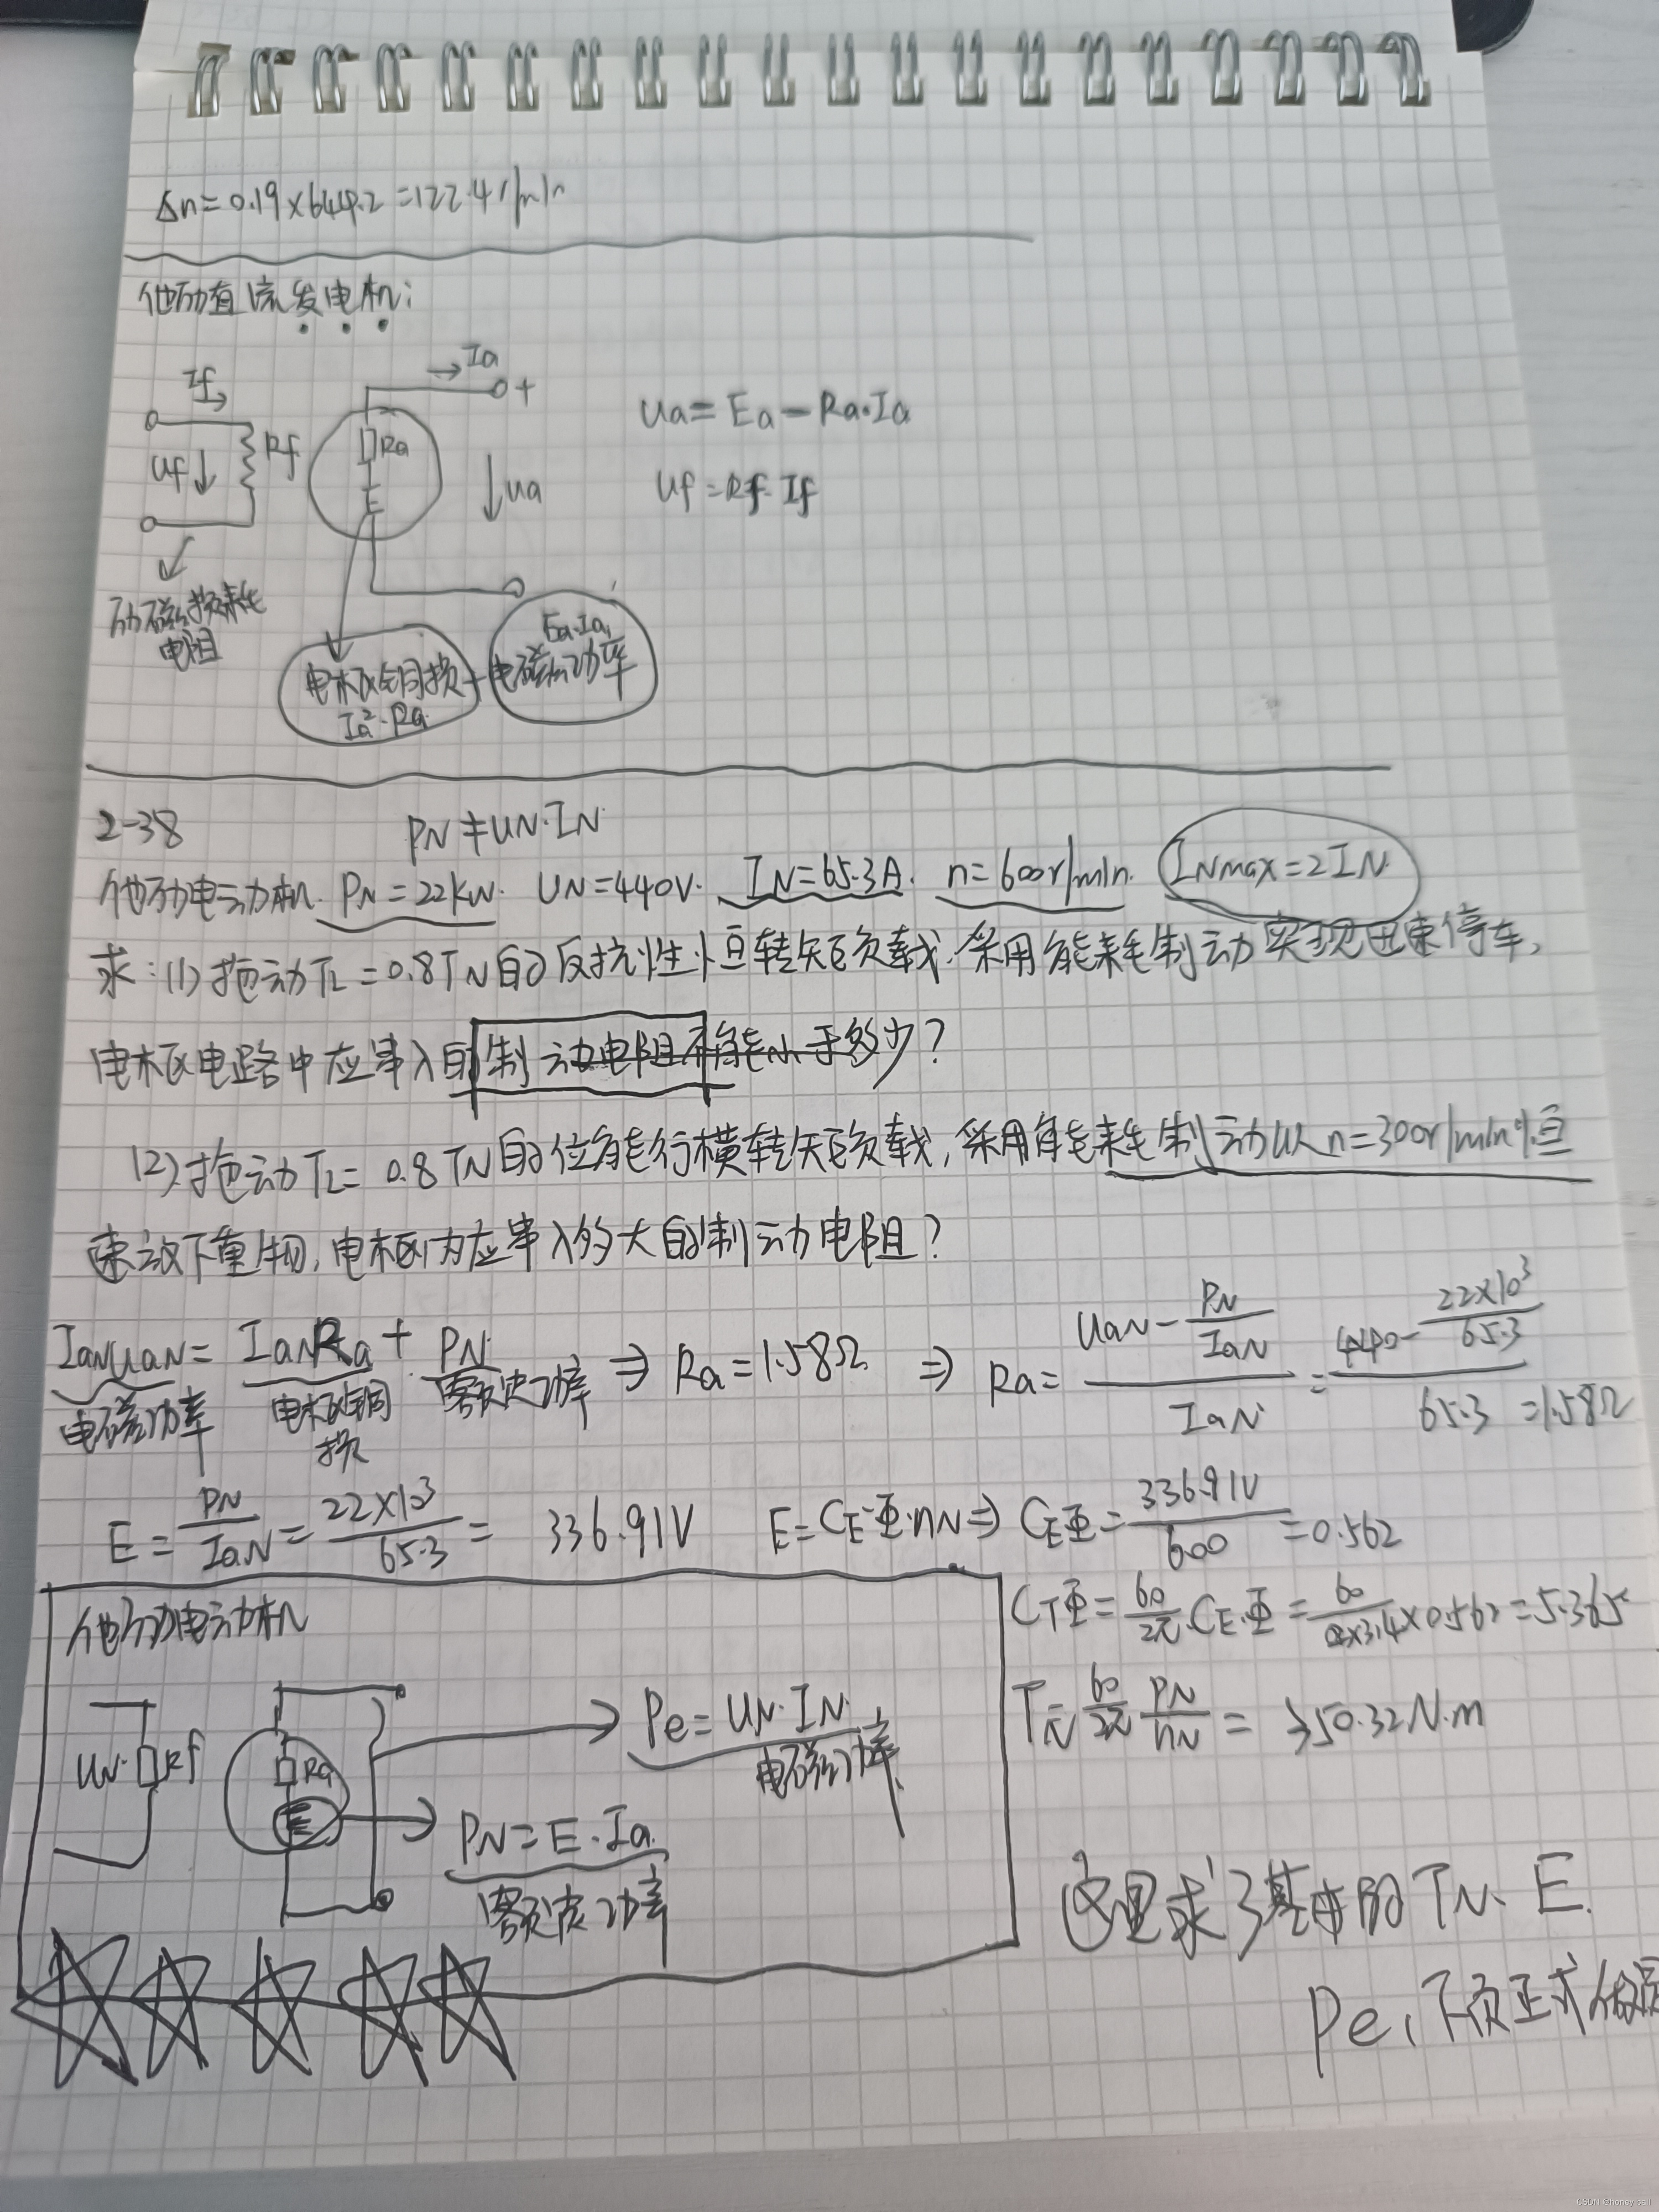 Δn=0.19×644.2=122.4r/min
他励直流发电机:
If
Rf
Uf
Ra
E
Ia
+
Ua
Ua=Ea-Ra·Ia
Uf=Rf·If
励磁损耗
电阻
电枢铜损
Ia²·Ra
+
Ea·Ia,
电磁功率
2-38
PN≠UN·IN
他励电动机. PN=22kW. UN=440V. IN=65.3A. n=600r/min. INmax=2IN
求:(1)拖动TL=0.8TN的反抗性恒转矩负载.采用能耗制动实现迅速停车,
电枢电路中应串入的制动电阻不能小于多少?
(2)拖动TL=0.8TN的位能行横转矩负载,采用能耗制动以n=300r/min恒
速放下重物,电枢内应串入多大的制动电阻?
IaNUaN=IaNRa+PN⇒Ra=1.58Ω ⇒ Ra=(UaN-PN/IaN)/IaN=(440-22×10³/65.3)/65.3=1.58Ω
电磁功率
电枢铜
损
额定功率
E=PN/IaN=22×10³/65.3=336.91V E=CEΦ·nN⇒CEΦ=336.91V/600=0.562
CTΦ=60/2π·CE·Φ=60/2×3.14×0.562=5.365
TN=60/2π PN/nN=350.32N·m
他励电动机
UN·
Rf
Ra
E
Pe=UN·IN
电磁功率
PN=E·Ia
额定功率
这里求了基本的TN、E.
Pe,下页正式做
CSDN @honey ball